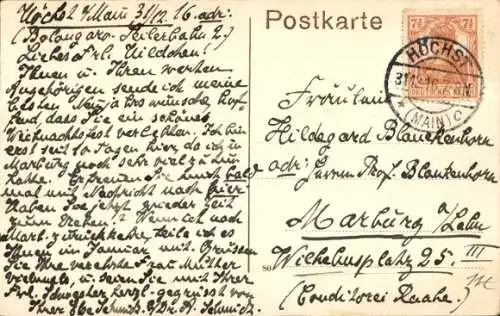 Höchst a/Main 31/12.16. adr:
(Bolongaro-Seilerbahn 2.)
Liebes Frl. Hildchen!
Ihnen u. Ihren werten
Angehörigen sende ich meine
besten Neujahrswünsche, hof-
fend dass Sie ein schönes
Weihnachtsfest verlebten. Ich bin
erst seit 10 Tagen hier, da ich in
Marburg noch sehr viel zu tun
hatte. Erfreuen Sie mich bald
mal mit Nachricht nach hier
Haben Sie jetzt wieder Zeit
zum Wenn ich nach
Marb. zurückkehre, teile ich es
Ihnen im Januar mit. Grüssen
Sie Ihre verehrte Frau Mutter
vielmals, u. seien Sie mit Ihrer
Frl. Schwester herzl. gegrüsst von
Ihrer Schmidt. Dr. Schmidt.
Postkarte
7½ 7½
DEUTSCHES REICH
HÖCHST
31.12.16
* (MAIN) C
Fräulein
Hildegard Blanckenhorn
adr: Herrn Prof. Blankenhorn
Marburg a/Lahn
Wilhelmsplatz 25. III
(Conditorei Raahe.)